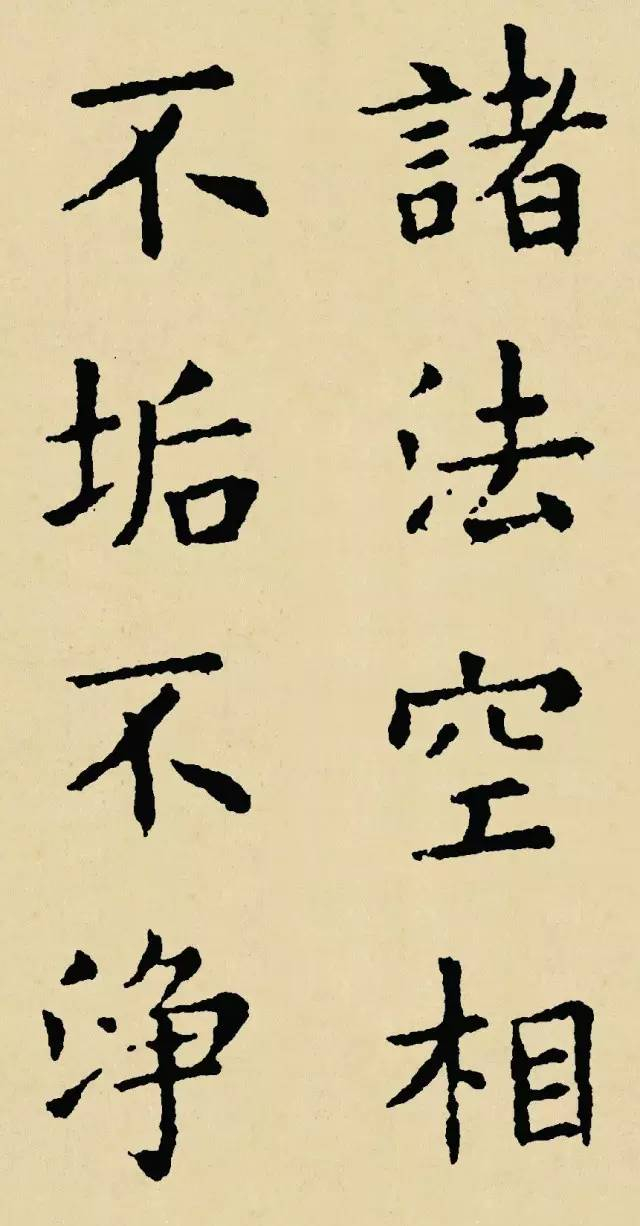 諸法空相
不垢不淨